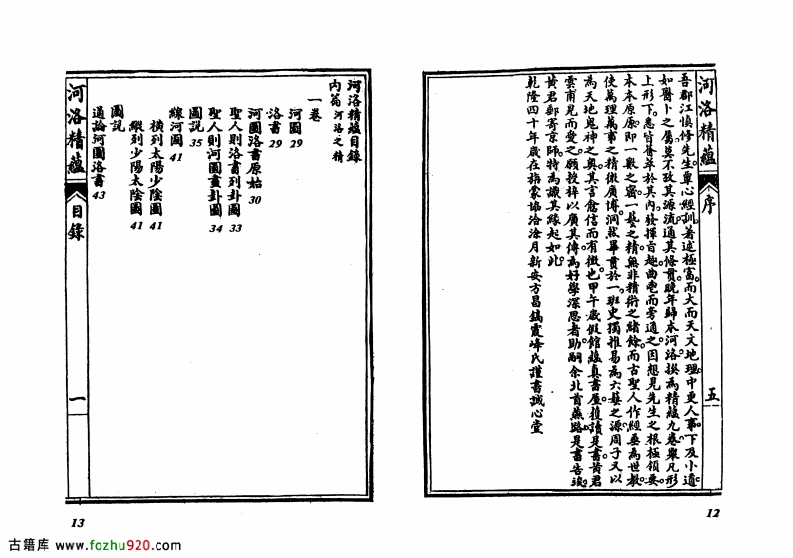 河洛精蘊
序
五
吾郡江慎修先生專心經訓著述極富而大而天文地理中更人事下及小道
如醫卜之屬莫不孜其源流通其條貫晚年歸本河洛撰為精蘊九卷舉凡形
上形下悉皆薈萃於其內發揮旨趣曲鬯而旁通之因想見先生之根極領要
本本原原即一數之密一藝之精無非精術之緒餘而古聖人作經垂為世教
使萬理萬事之精微廣博洞然畢貫於一班史獨推易為六藝之源周子又以
為天地鬼神之奧其言詹信而有徵也甲午歲假館蘊真書屋獲讀是書黃君
雲甫見而愛之願授梓以廣其傳為好學深思者助嗣余北首燕路是書告竣
黃君郵寄京師特為識其緣起如此
乾隆四十年歲在旃蒙協洽涂月新安方昌鎬霞峰氏謹書誠心堂
12
河洛精蘊目錄
內篇 河洛之精
一卷
河圖 29
洛書 29
河圖洛書原始 30
聖人則洛書列卦圖 33
聖人則河圖畫卦圖 34
圖說 35
線河圖 41
橫列太陽少陰圖 41
縱列少陽太陰圖 41
圖說
通論河圖洛書 43
河洛精蘊
目錄
一
13
古籍库 www.fozhu920.com